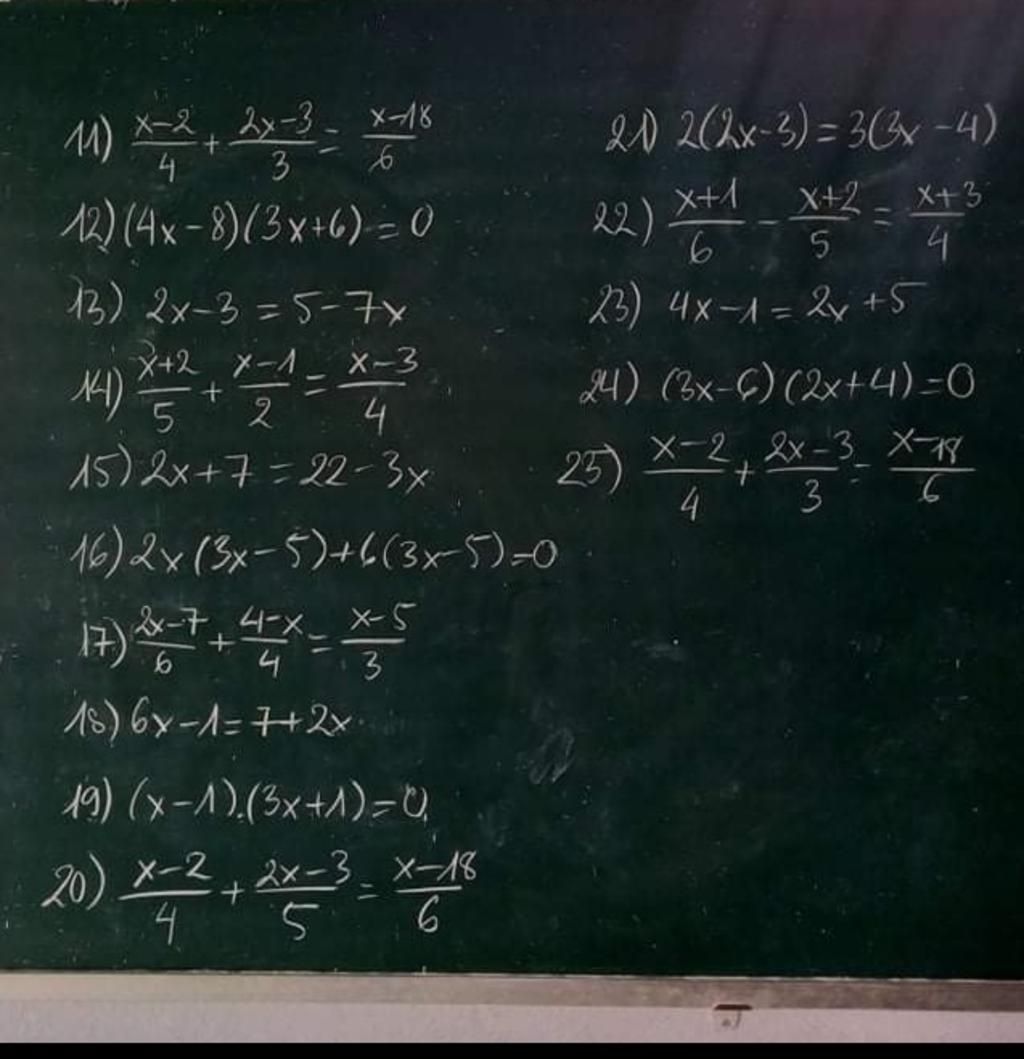 11) (x-2)/4 + (2x-3)/3 = (x-18)/6
12) (4x-8)(3x+6)=0
13) 2x-3=5-7x
14) (x+2)/5 + (x-1)/2 = (x-3)/4
15) 2x+7=22-3x
16) 2x(3x-5)+6(3x-5)=0
17) (2x-7)/6 + (4-x)/4 = (x-5)/3
18) 6x-1=7+2x
19) (x-1).(3x+1)=0
20) (x-2)/4 + (2x-3)/5 = (x-18)/6
21) 2(2x-3)=3(3x-4)
22) (x+1)/6 - (x+2)/5 = (x+3)/4
23) 4x-1=2x+5
24) (3x-6)(2x+4)=0
25) (x-2)/4 + (2x-3)/3 = (x-18)/6